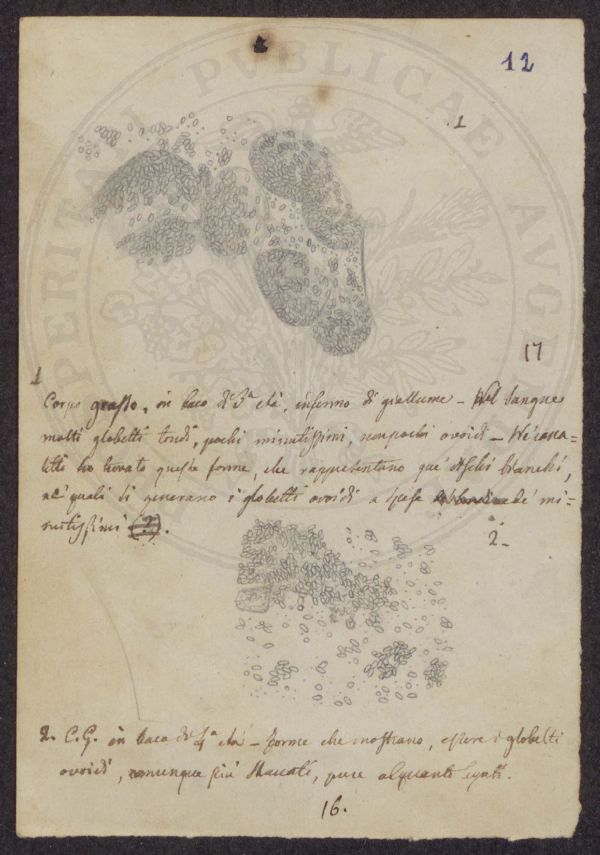 12
1
17
1
Corpo grasso, in baco di 5ª età, infermo di giallume – Nel sangue
molti globetti tondi, pochi minutissimi, non pochi ovoidi – Ne' cana=
letti ho trovato queste forme, che rappresentano que' bianchi,
ne' quali si generano i globetti ovoidi a spese de' mi=
nutissimi (?).
2_
2. C.G. in baco di età – forme che mostrano, essere i globetti
ovoidi, comunque più staccati, pure alquanto legati.
16.
PERITAT PVBLICAE AVGE